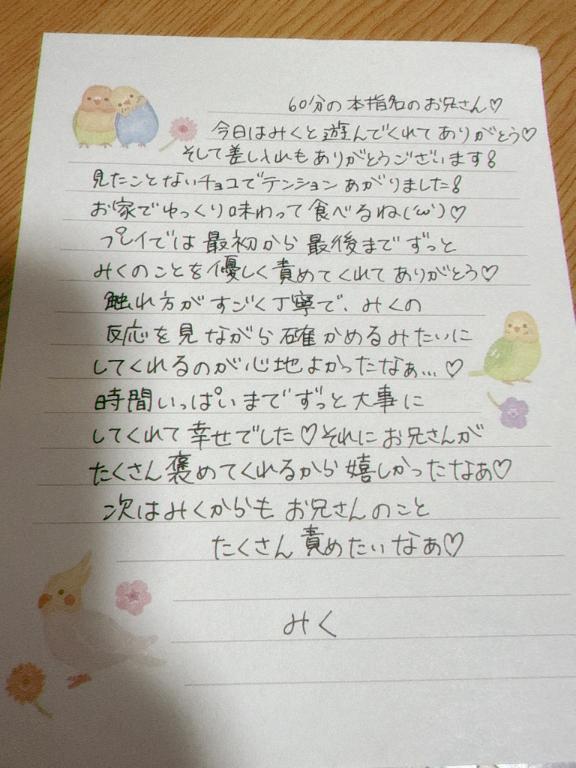 60分の本指名のお兄さん♡
今日はみくと遊んでくれてありがとう♡
そして差し入れもありがとうございます!
見たことないチョコでテンションあがりました!
お家でゆっくり味わって食べるね('ω')♡
プレイでは最初から最後までずっと
みくのことを優しく責めてくれてありがとう♡
触れ方がすごく丁寧で、みくの
反応を見ながら確かめるみたいに
してくれるのが心地よかったなぁ...♡
時間いっぱいまでずっと大事に
してくれて幸せでした♡それにお兄さんが
たくさん褒めてくれるから嬉しかったなぁ♡
次はみくからもお兄さんのこと
たくさん責めたいなぁ♡
みく